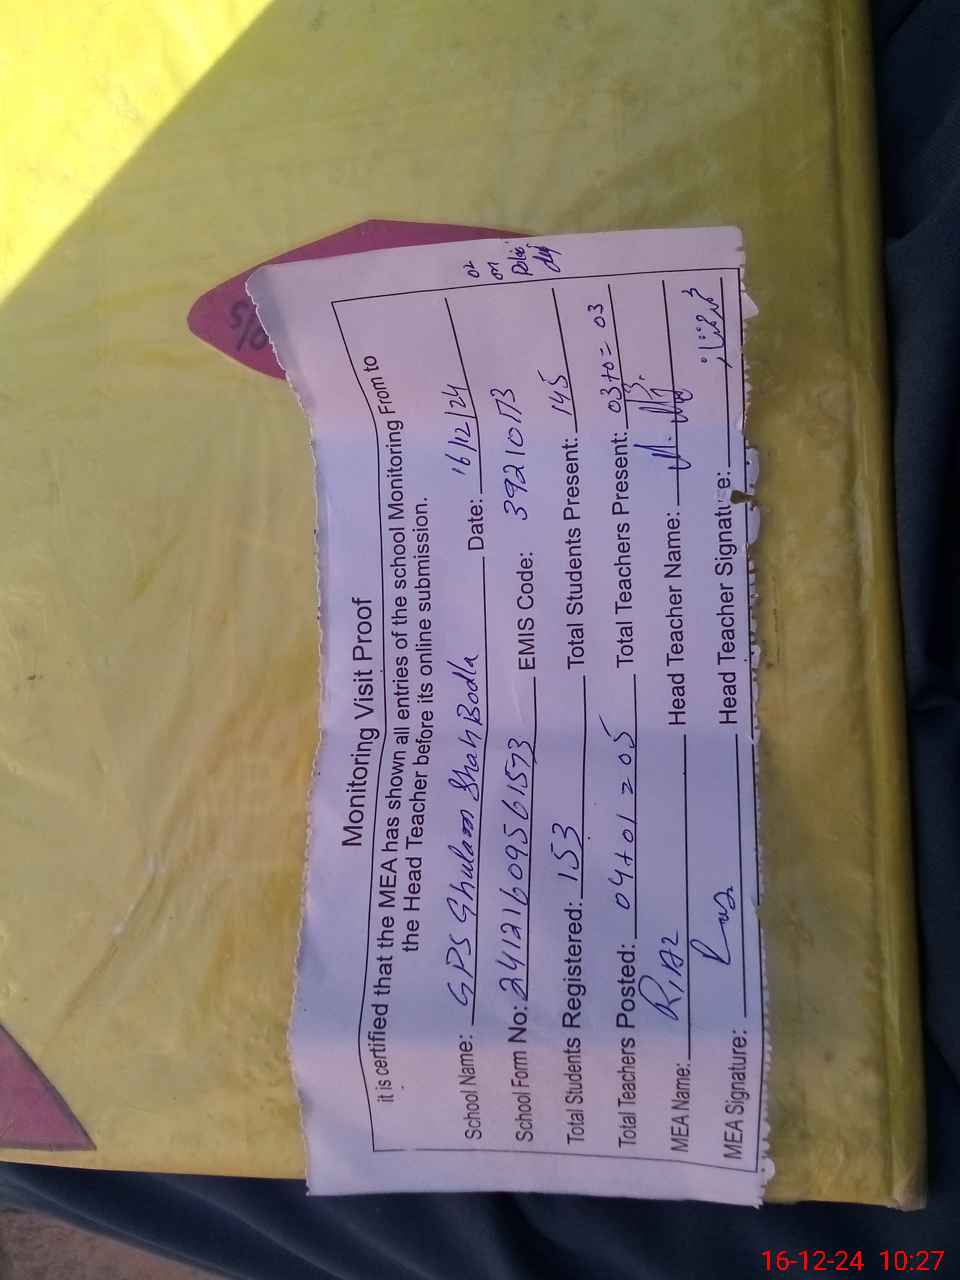 Monitoring Visit Proof
it is certified that the MEA has shown all entries of the school Monitoring From to
the Head Teacher before its online submission.
School Name: GPS Ghulam Shah Bodla Date: 16/12/24
School Form No: 24121609561573 EMIS Code: 39210173
Total Students Registered: 153 Total Students Present: 145
Total Teachers Posted: 04+01=05 Total Teachers Present: 03+0=03
MEA Name: RIAZ Head Teacher Name:
MEA Signature: Head Teacher Signature:
02
on
Polio
duty
16-12-24 10:27